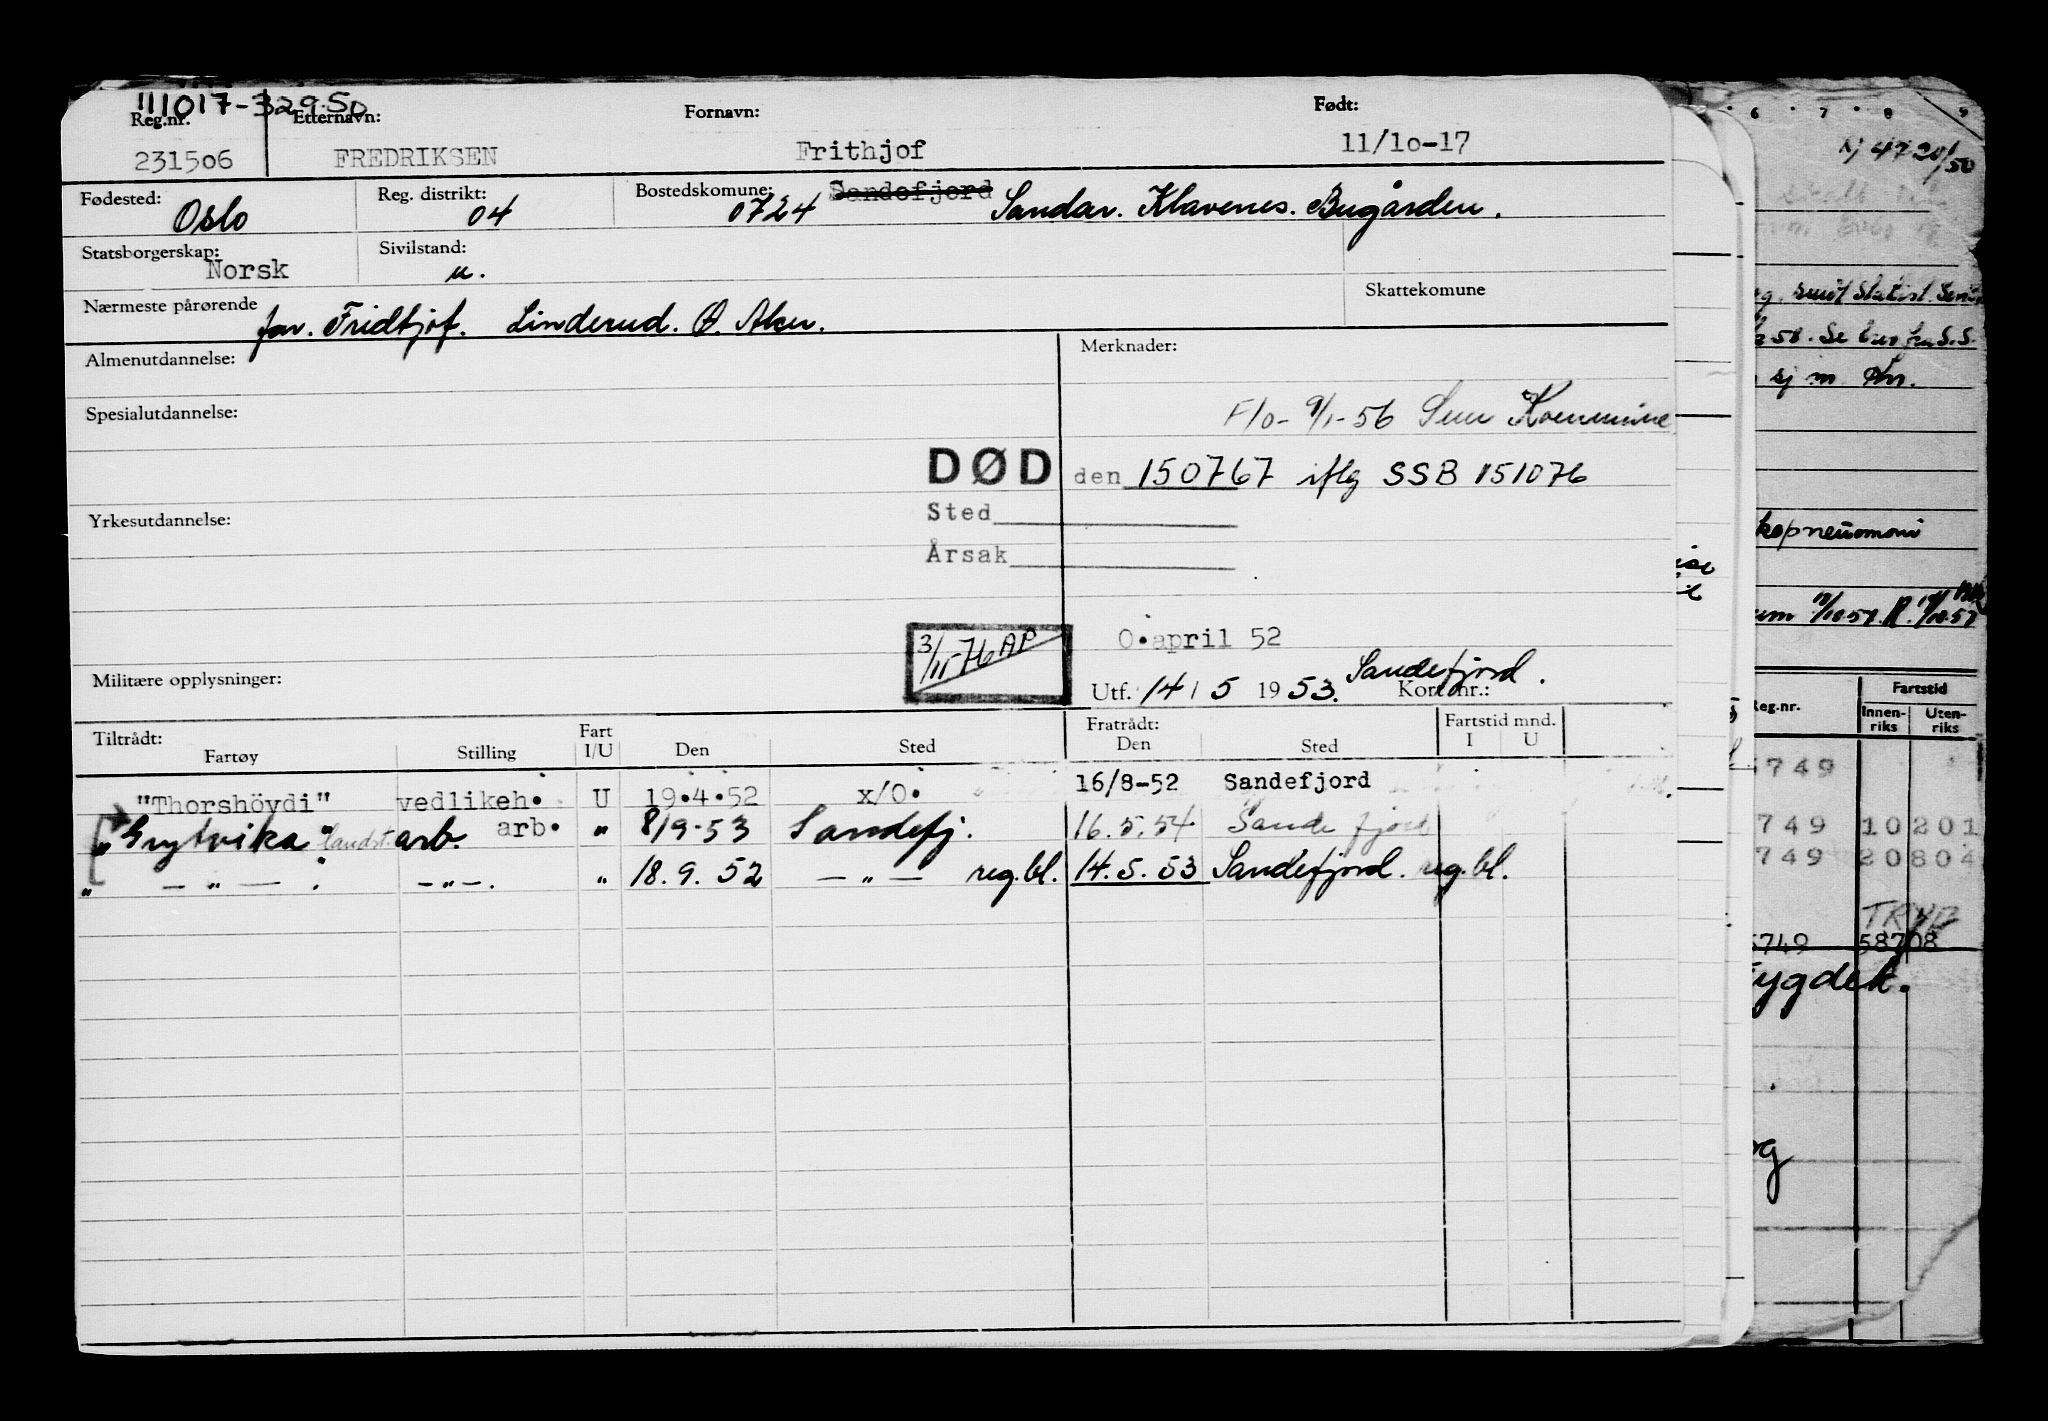 111017-32950
Reg.nr. Etternavn: Fornavn: Født:
231506 FREDRIKSEN Frithjof 11/10-17
Fødested: Oslo Reg. distrikt: 04 Bostedskomune: 0724 Sandefjord Sandar. Klavenes. Bugården.
Statsborgerskap: Norsk Sivilstand: u.
Nærmeste pårørende far. Fridtjof. Linderud. Ø. Aker. Skattekomune
Almenutdannelse: Merknader:
F/O- 9/1-56 Sem Kommune
Spesialutdannelse:
DØD den 150767 iflg SSB 151076
Sted
Yrkesutdannelse:
Årsak
3/11-76 AP
O.april 52
Militære opplysninger:
Utf. 14 / 5 1953. Sandefjord. Kort nr.:
Tiltrådt: Fratrådt:
Fartøy Stilling Fart I/U Den Sted Den Sted Fartstid mnd. I U
"Thorshöydi" vedlikeh. arb. U 19.4.52 x/O. 16/8-52 Sandefjord
"Grytvika" landst. arb. " 8/9-53 Sandefj. 16.5.54 Sandefjord
" — " — . — " —. " 18.9.52 — " — reg.bl. 14.5.53 Sandefjord. reg.bl.
6 7 8 9
4720/50
sj m
kopneumoni
Reg.nr. Fartstid
Innen-riks Uten-riks
749
749 10201
749 20804
TRYD
5749 58708
Tygdek.
og